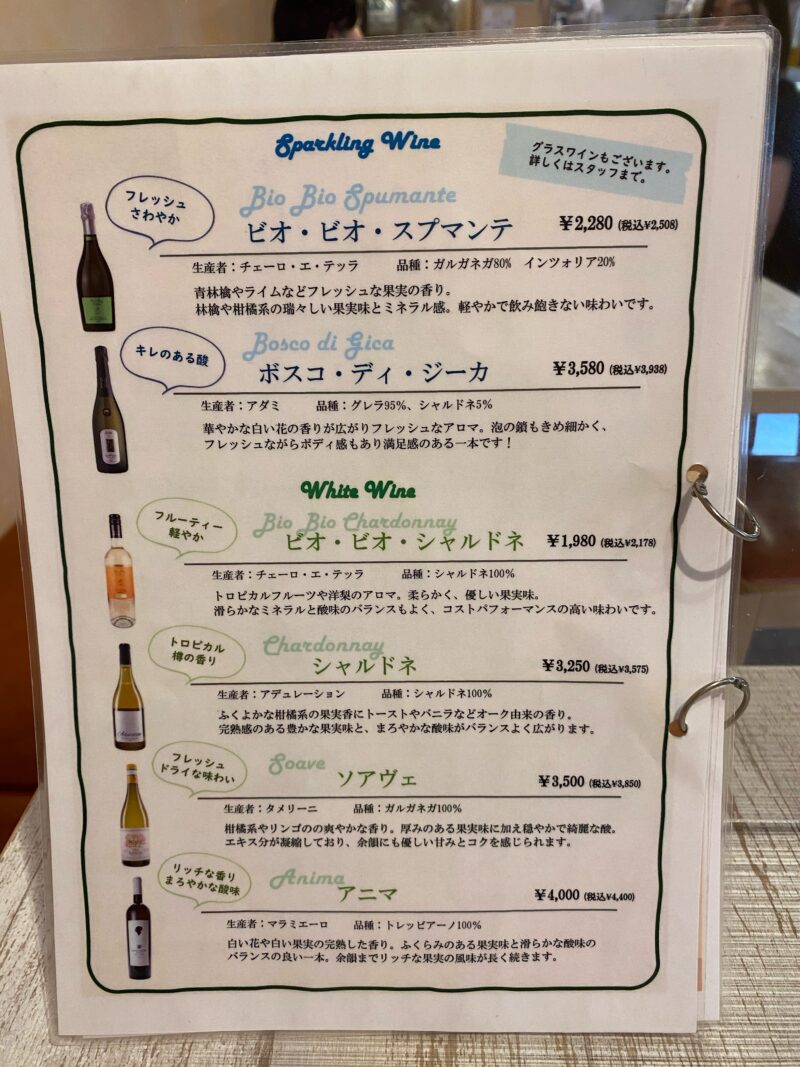 Sparkling Wine
グラスワインもございます。
詳しくはスタッフまで。
フレッシュ
さわやか
Bio Bio Spumante
ビオ・ビオ・スプマンテ ¥2,280 (税込¥2,508)
生産者：チェーロ・エ・テッラ 品種：ガルガネガ80% インツォリア20%
青林檎やライムなどフレッシュな果実の香り。
林檎や柑橘系の瑞々しい果実味とミネラル感。軽やかで飲み飽きない味わいです。
キレのある酸
Bosco di Gica
ボスコ・ディ・ジーカ ¥3,580 (税込¥3,938)
生産者：アダミ 品種：グレラ95%、シャルドネ5%
華やかな白い花の香りが広がりフレッシュなアロマ。泡の鎖もきめ細かく、
フレッシュながらボディ感もあり満足感のある一本です！
White Wine
フルーティー
軽やか
Bio Bio Chardonnay
ビオ・ビオ・シャルドネ ¥1,980 (税込¥2,178)
生産者：チェーロ・エ・テッラ 品種：シャルドネ100%
トロピカルフルーツや洋梨のアロマ。柔らかく、優しい果実味。
滑らかなミネラルと酸味のバランスもよく、コストパフォーマンスの高い味わいです。
トロピカル
樽の香り
Chardonnay
シャルドネ ¥3,250 (税込¥3,575)
生産者：アデュレーション 品種：シャルドネ100%
ふくよかな柑橘系の果実香にトーストやバニラなどオーク由来の香り。
完熟感のある豊かな果実味と、まろやかな酸味がバランスよく広がります。
フレッシュ
ドライな味わい
Soave
ソアヴェ ¥3,500 (税込¥3,850)
生産者：タメリーニ 品種：ガルガネガ100%
柑橘系やリンゴのの爽やかな香り。厚みのある果実味に加え穏やかで綺麗な酸。
エキス分が凝縮しており、余韻にも優しい甘みとコクを感じられます。
リッチな香り
まろやかな酸味
Anima
アニマ ¥4,000 (税込¥4,400)
生産者：マラミエーロ 品種：トレッビアーノ100%
白い花や白い果実の完熟した香り。ふくらみのある果実味と滑らかな酸味の
バランスの良い一本。余韻までリッチな果実の風味が長く続きます。